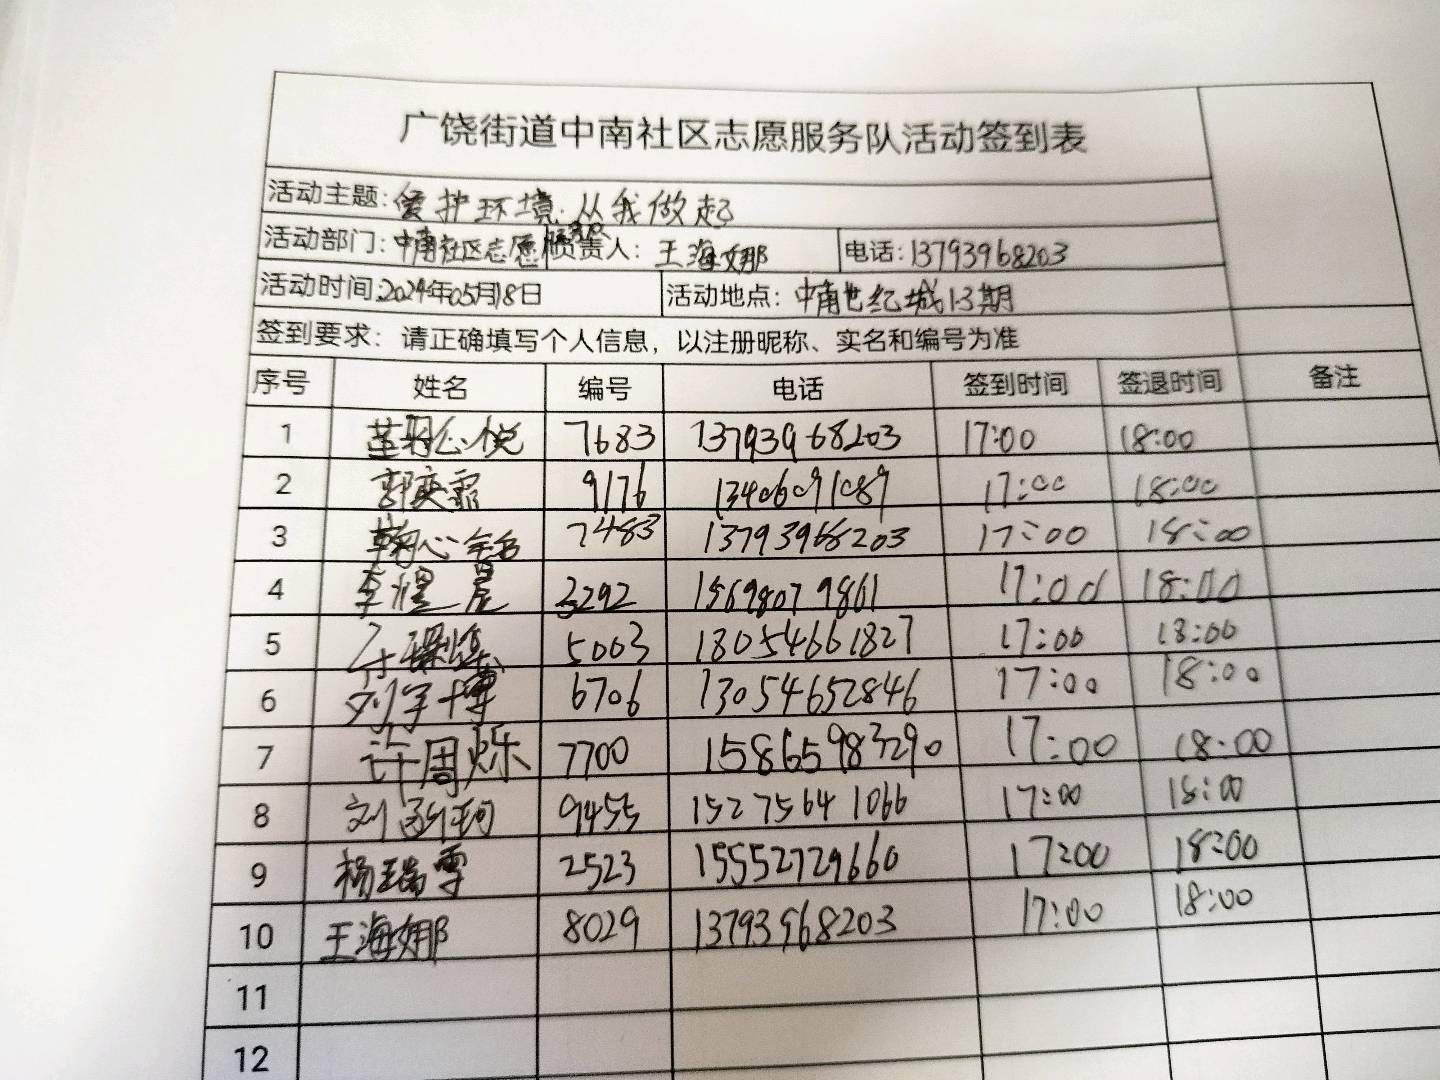 广饶街道中南社区志愿服务队活动签到表
活动主题:爱护环境.从我做起
活动部门:中南社区志愿服务队 负责人:王海娜 电话:13793968203
活动时间:2024年05月18日 活动地点:中南世纪城1-3期
签到要求:请正确填写个人信息,以注册昵称、实名和编号为准
序号 姓名 编号 电话 签到时间 签退时间 备注
1 心悦 7683 13793968203 17:00 18:00
2 郭奕霏 9176 13406091089 17:00 18:00
3 7483 13793968203 17:00 18:00
4 李煜晨 3292 15698079861 17:00 18:00
5 5003 18054661827 17:00 18:00
6 刘宇博 6706 13054652846 17:00 18:00
7 许周烁 7700 15865983290 17:00 18:00
8 刘 珂 9455 15275641066 17:00 18:00
9 杨瑞雪 2523 15552729660 17:00 18:00
10 王海娜 8029 13793968203 17:00 18:00
11
12